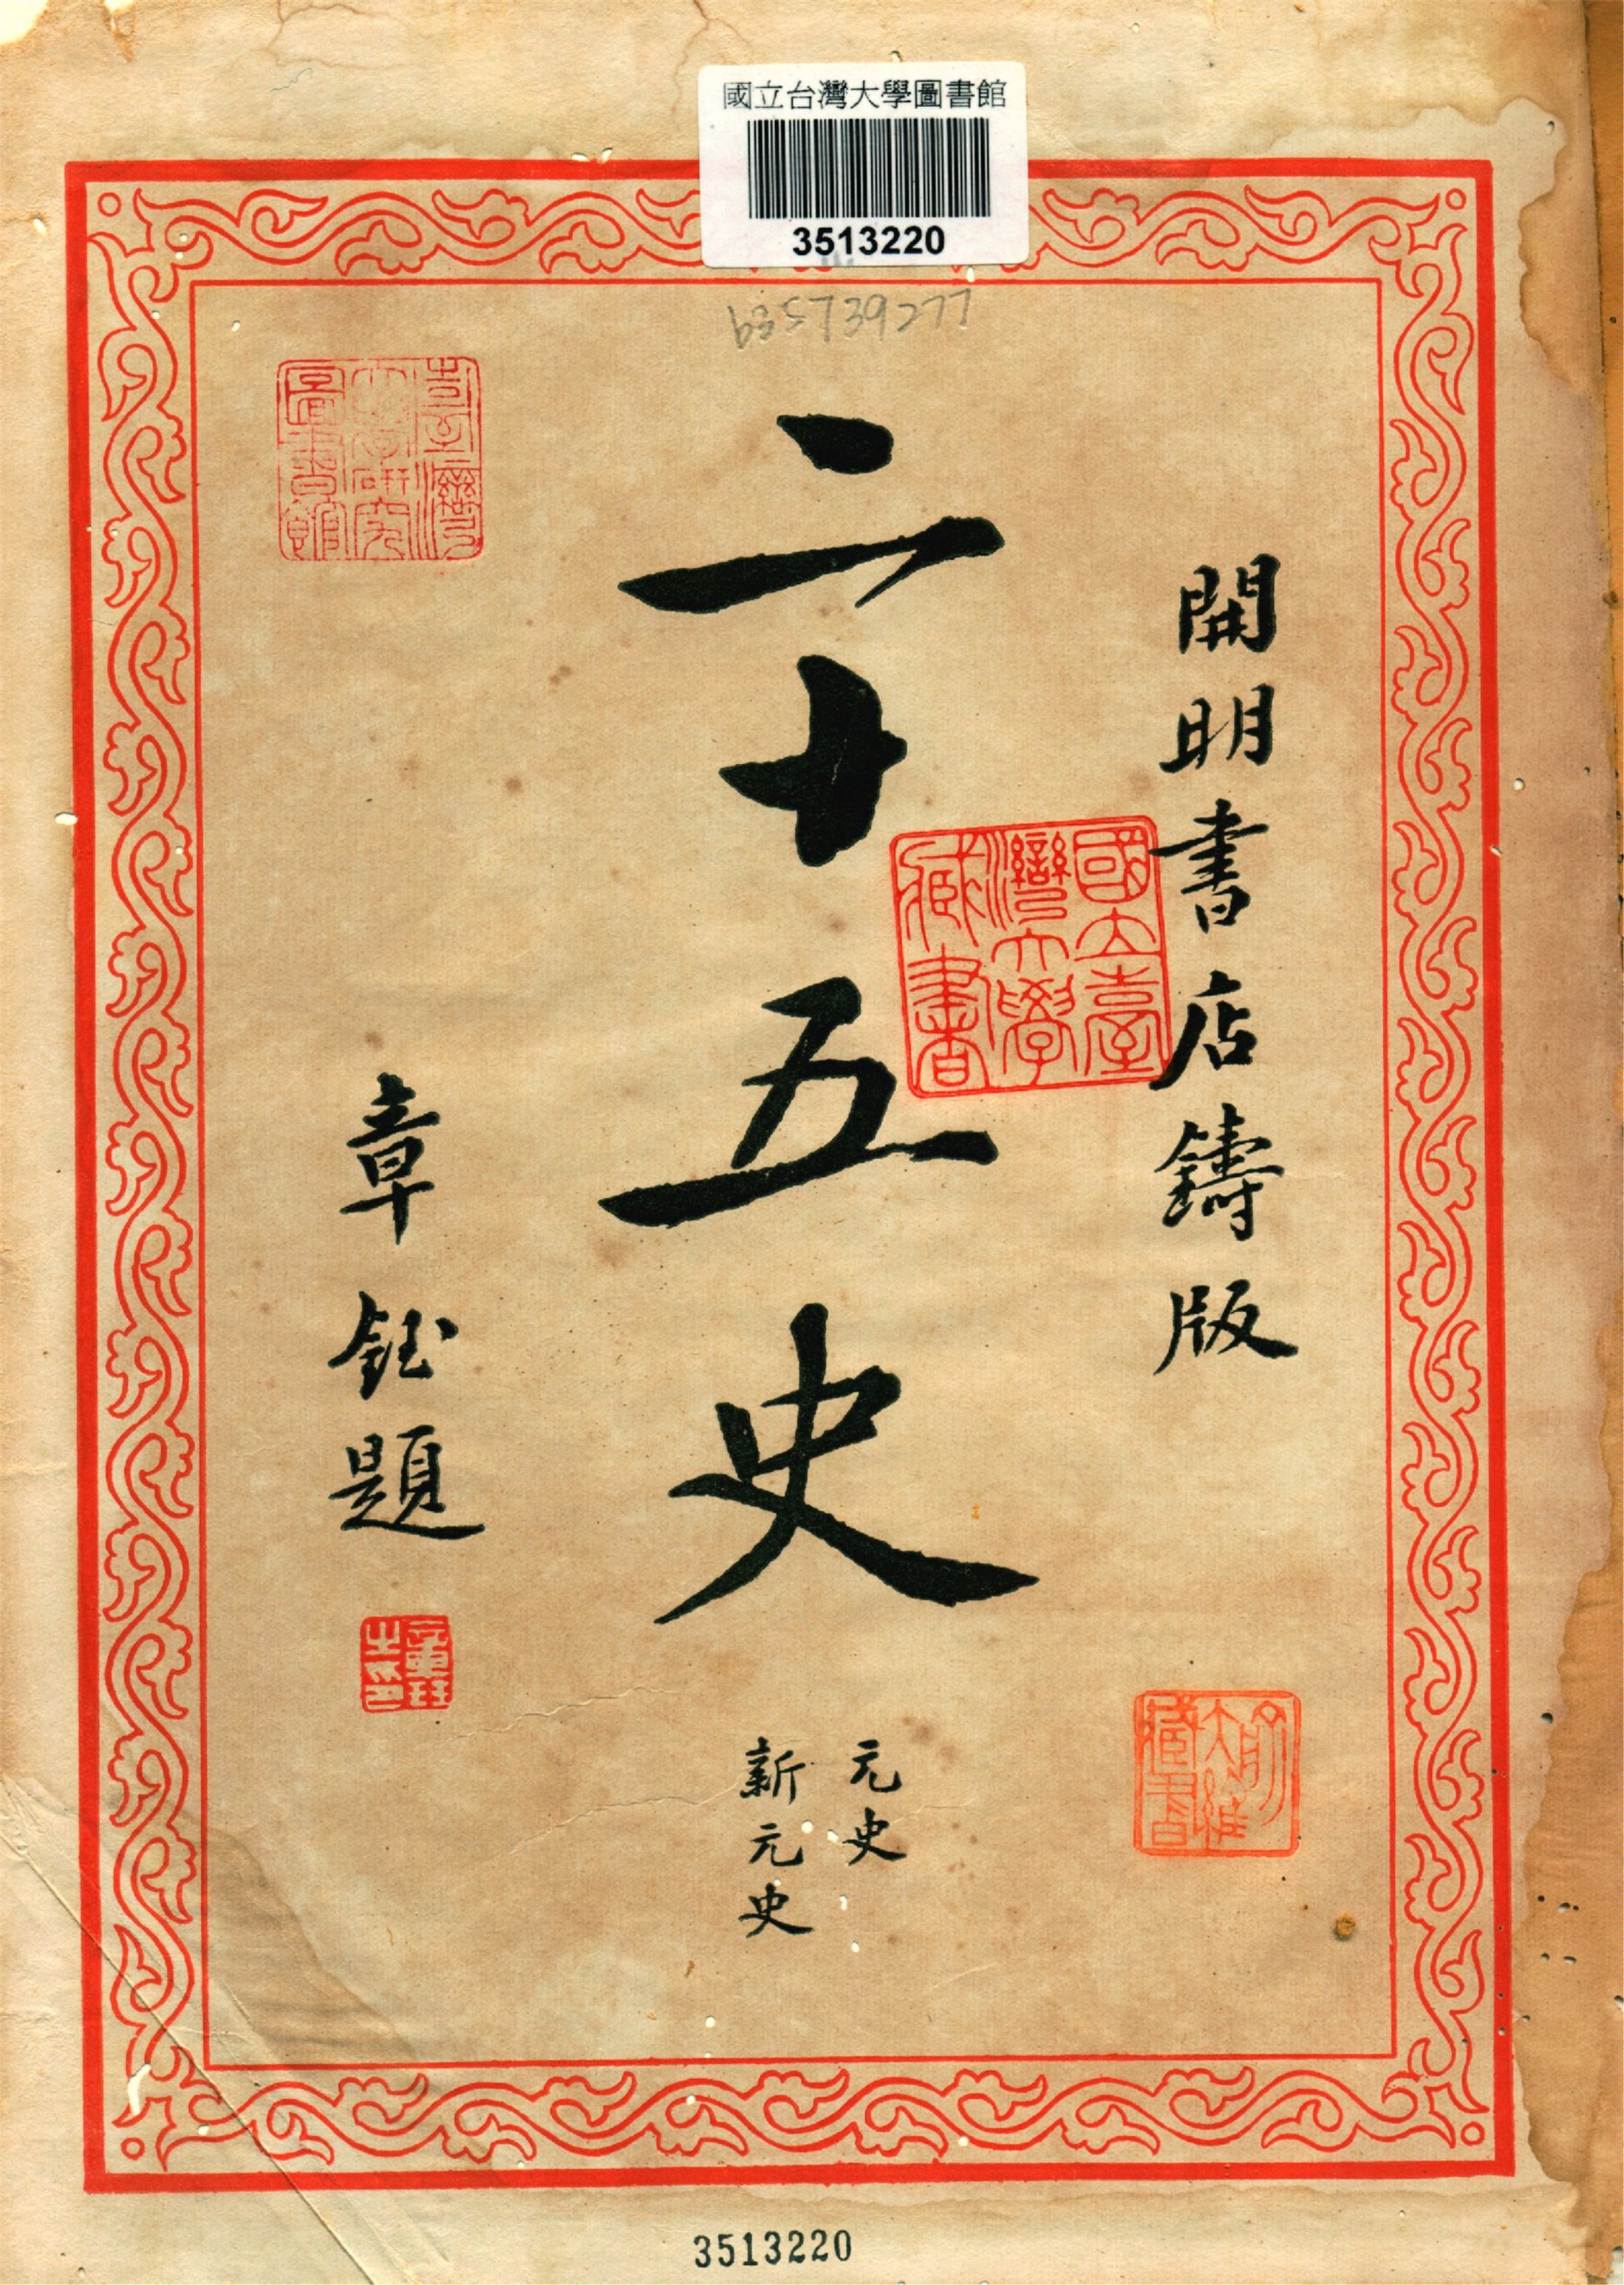 國立台灣大學圖書館
3513220
b35739277
開明書店鑄版
二十五史
元史
新元史
章鈺題
章鈺之印
國立臺灣大學藏書
臺灣大學研究圖書館
3513220